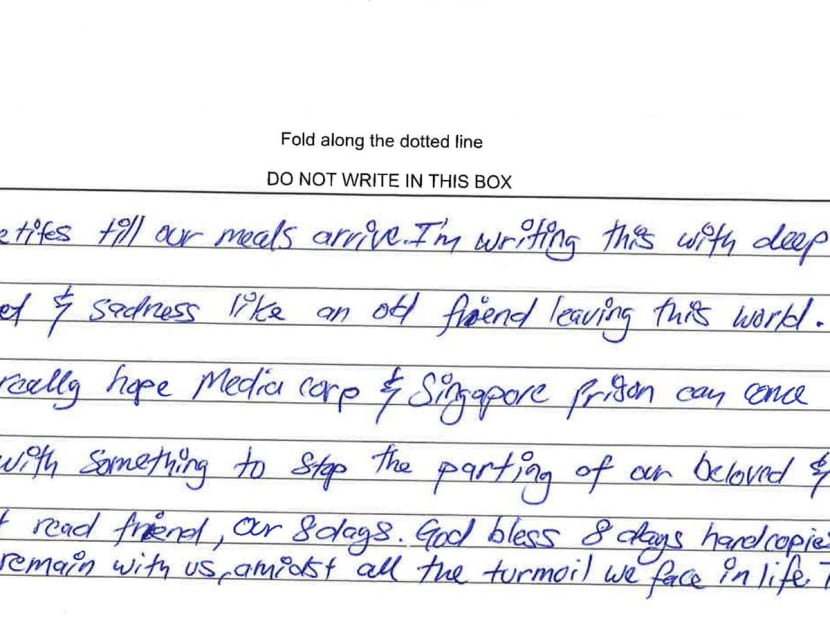 Fold along the dotted line
DO NOT WRITE IN THIS BOX
etites till our meals arrive. I'm writing this with deep
et & sadness like an old friend leaving this world.
really hope Media corp & Singapore Prison can once
with something to stop the parting of our beloved &
t read friend, our 8days. God bless 8 days hardcopie
remain with us, amidst all the turmoil we face in life. T